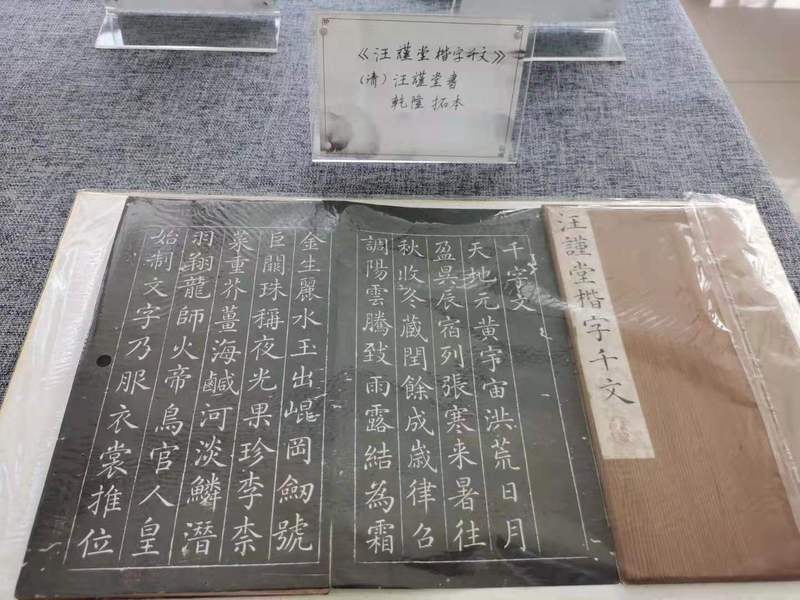 《汪谨堂楷字千文》
（清）汪谨堂書
乾隆 拓本
汪謹堂楷字千文
千字文
天地元黃宇宙洪荒日月
盈昃辰宿列張寒来暑往
秋收冬藏閏餘成歳律召
調陽雲騰致雨露結為霜
金生麗水玉出崐岡劒號
巨闕珠稱夜光果珍李柰
菜重芥薑海鹹河淡鱗潛
羽翔龍師火帝鳥官人皇
始制文字乃服衣裳推位